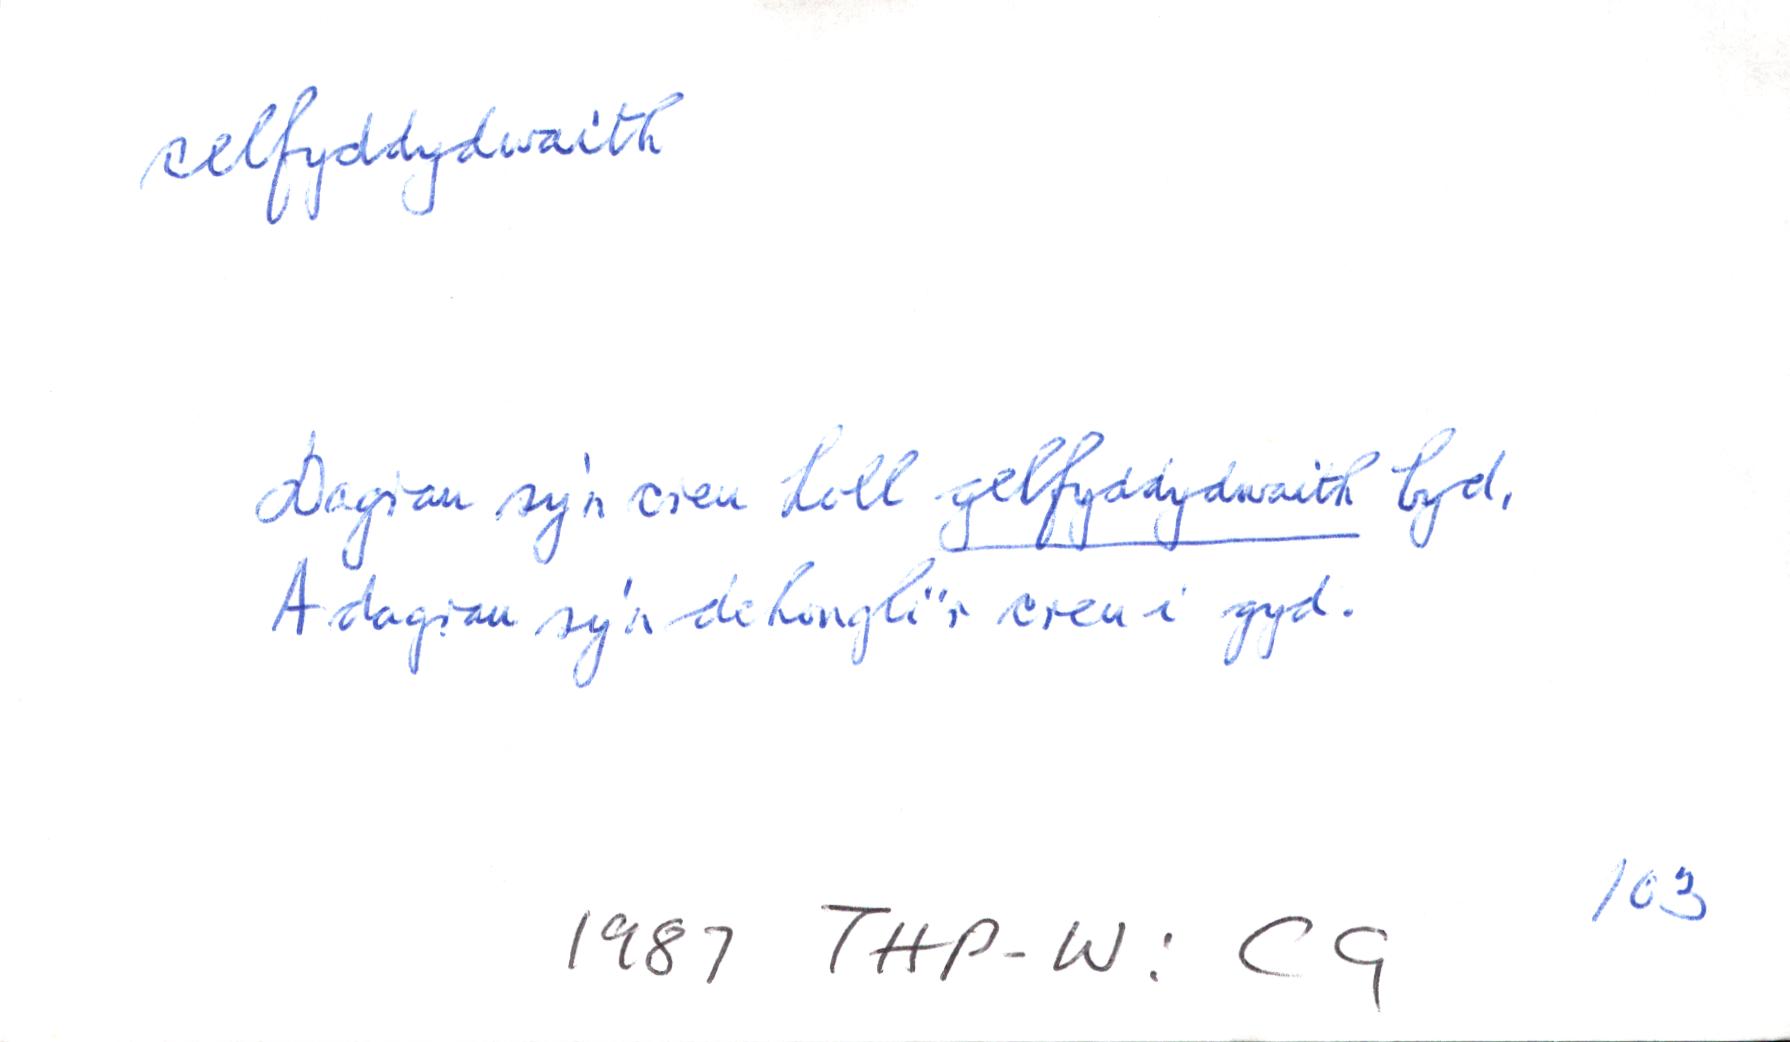 celfyddydwaith
Dagrau sy'n creu holl gelfyddydwaith byd,
A dagrau sy'n dehongli'r creu i gyd.
103
1987 THP-W: CG